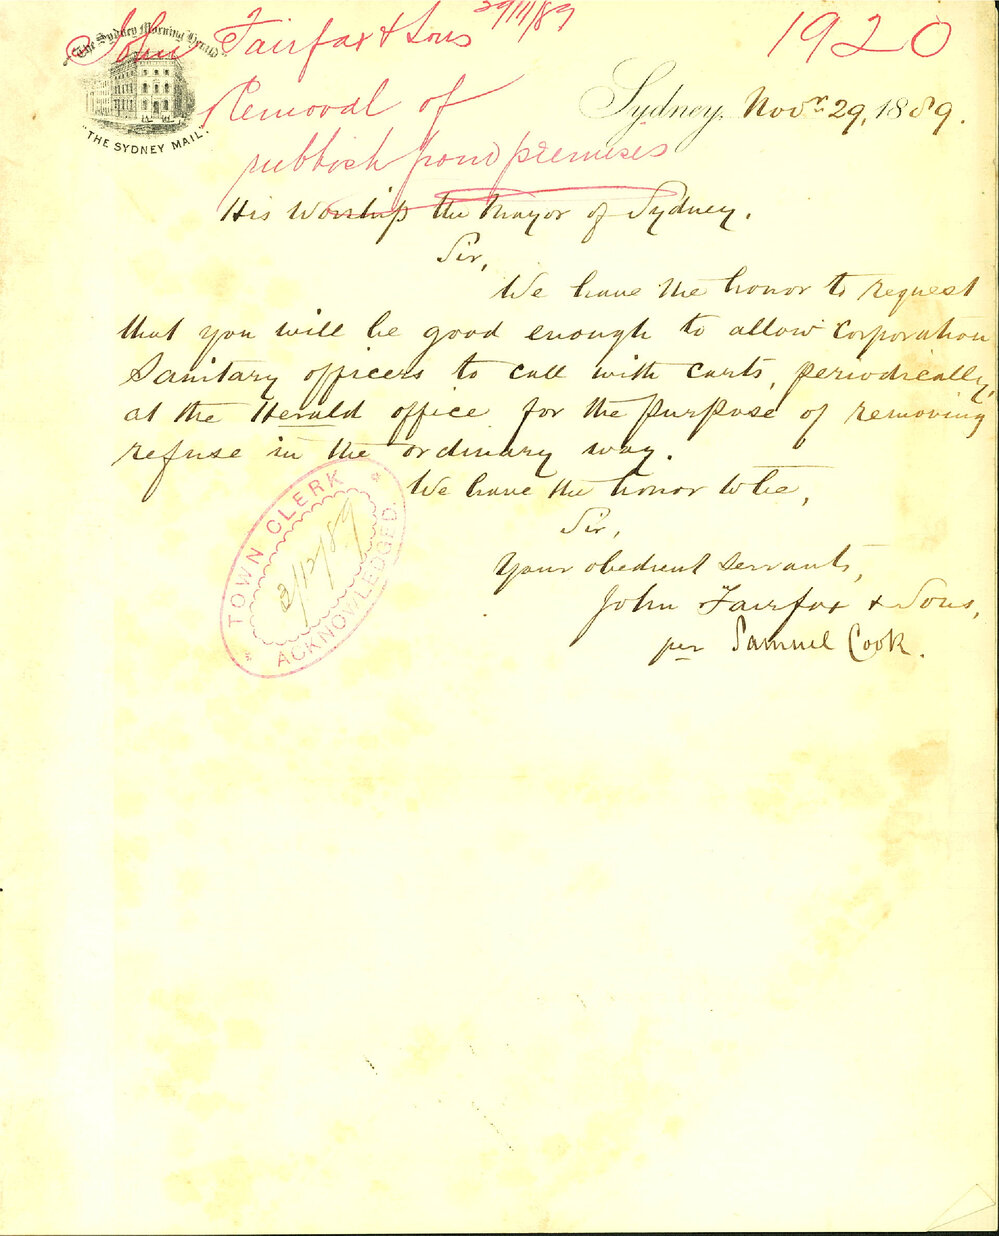 29/11/89
John Fairfax & Sons
1920
The Sydney Morning Herald
"THE SYDNEY MAIL."
Removal of
rubbish from premises
Sydney, Novr. 29, 1889.
His Worship the Mayor of Sydney.
Sir,
We have the honor to request
that you will be good enough to allow Corporation
Sanitary officers to call with carts, periodically,
at the Herald office for the purpose of removing
refuse in the ordinary way.
We have the honor to be,
Sir,
Your obedient servants,
John Fairfax & Sons,
per Samuel Cook.
TOWN CLERK
2/12/89
ACKNOWLEDGED